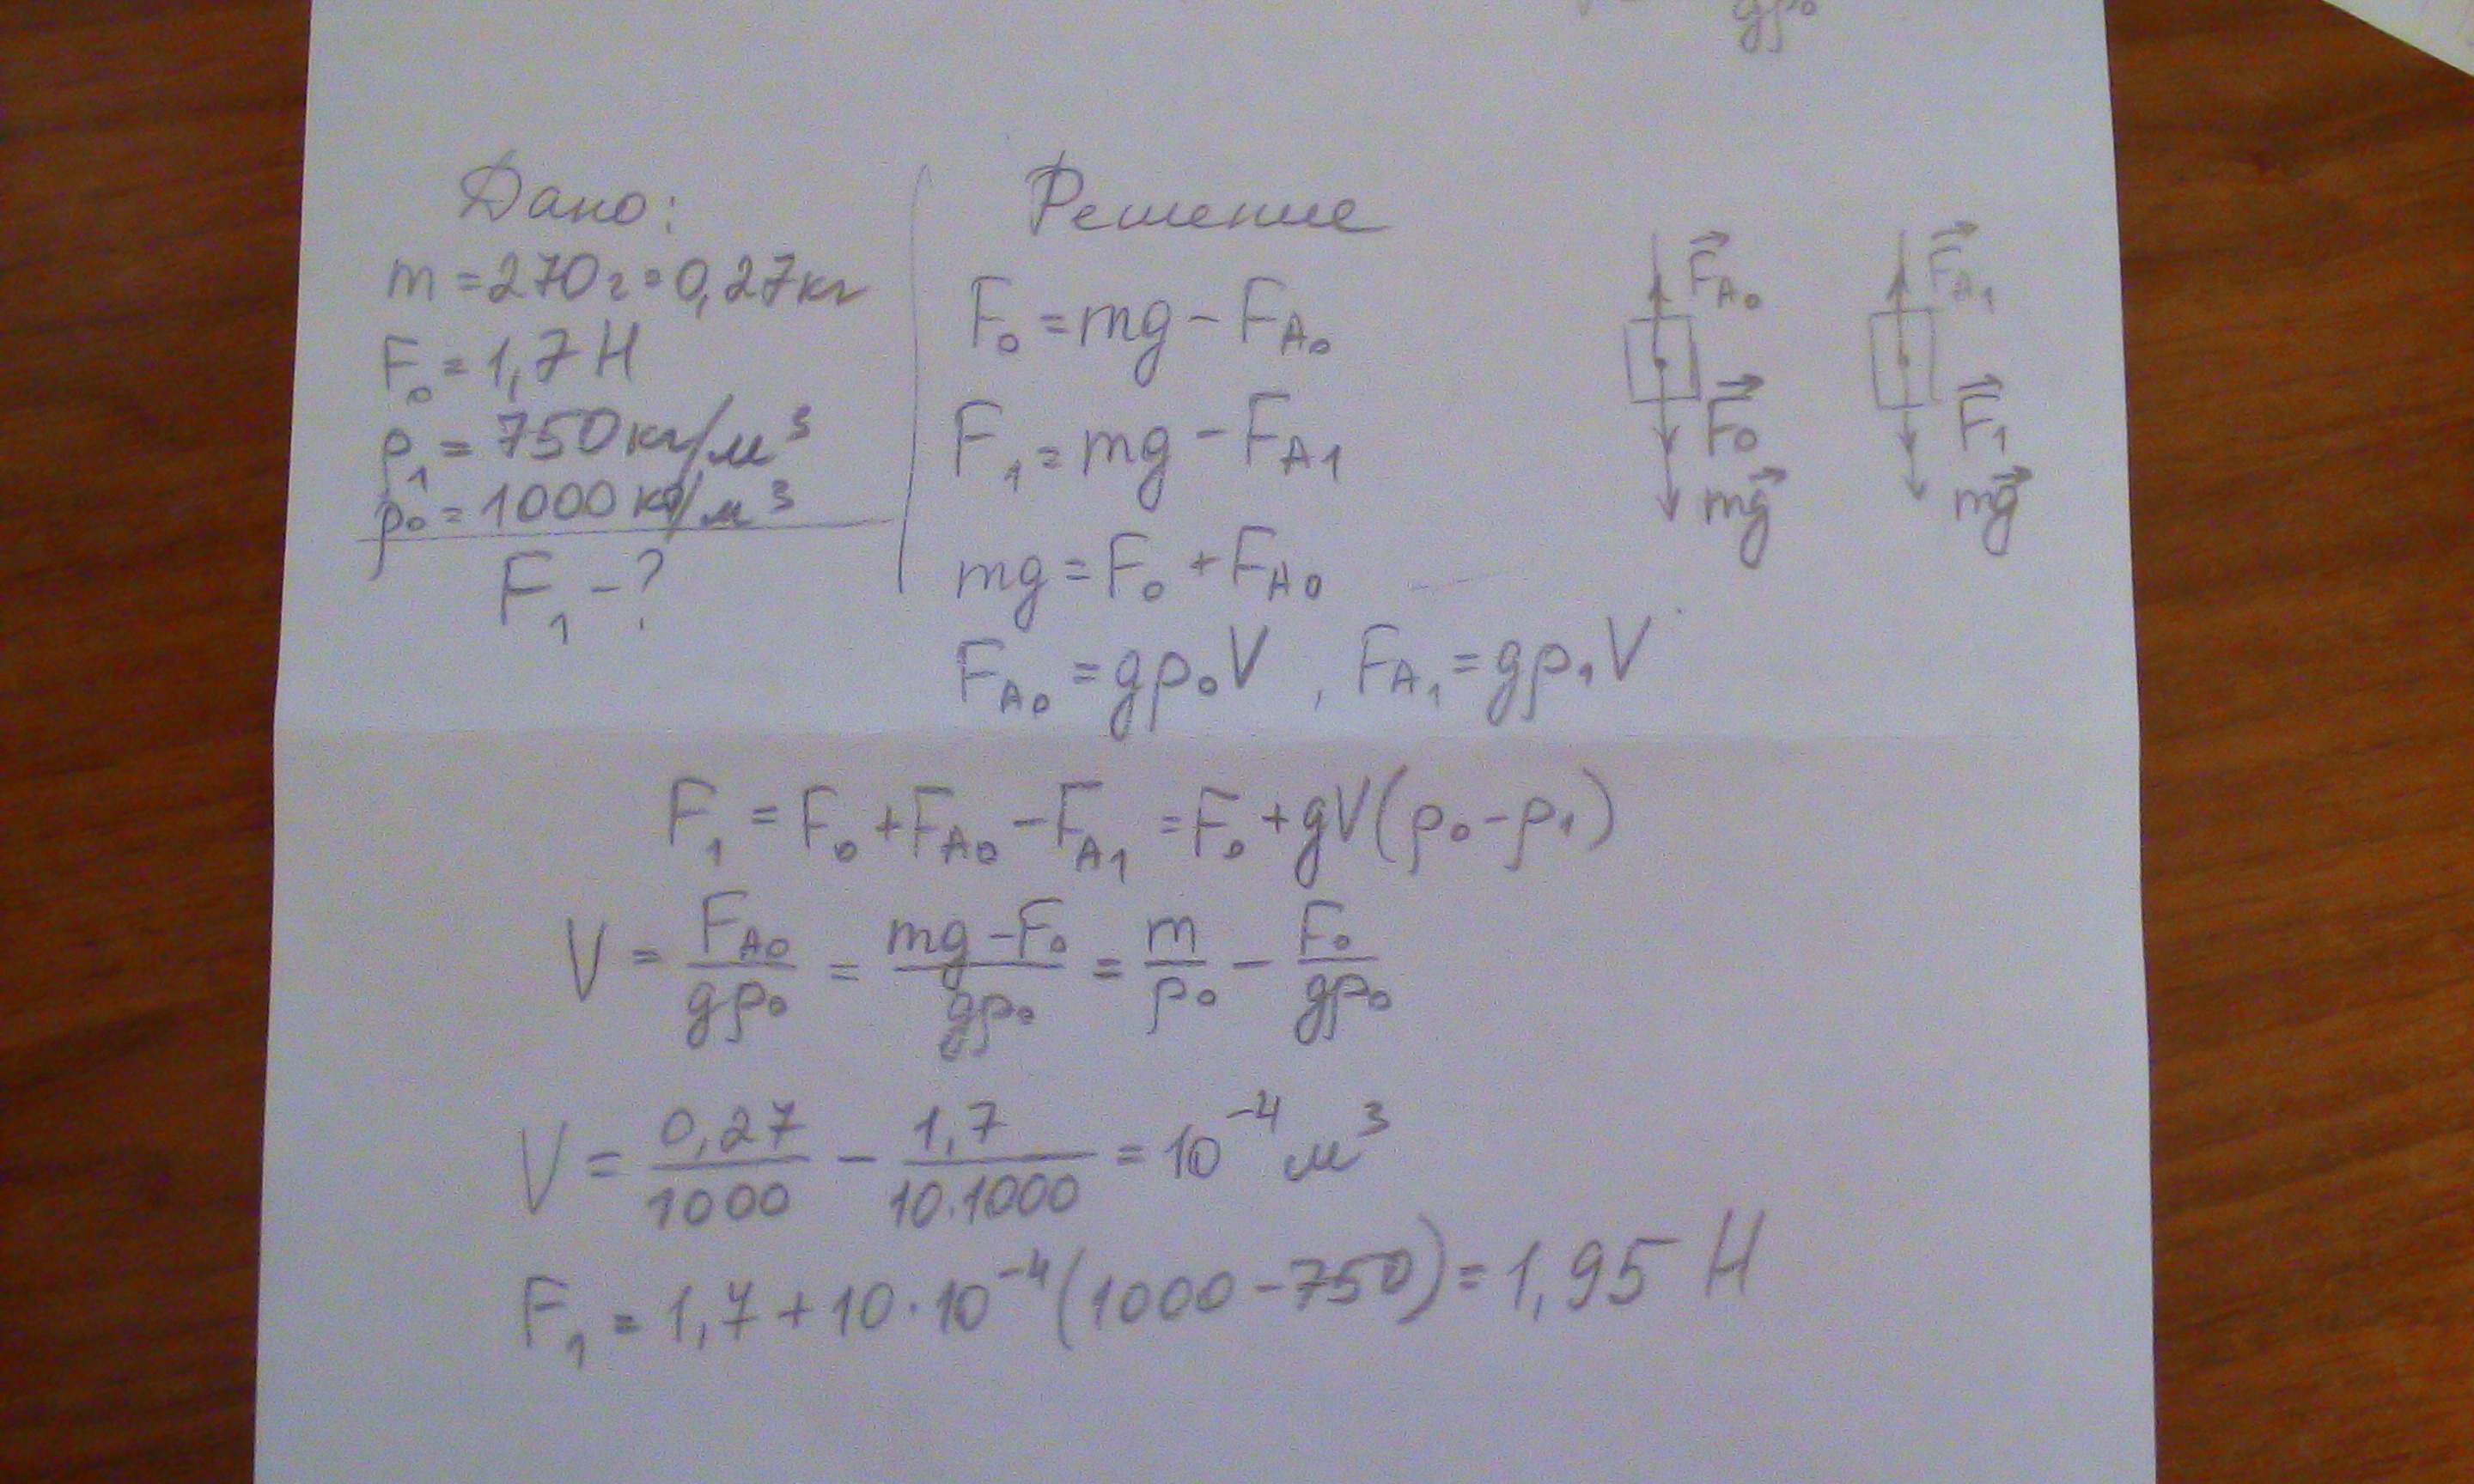 gρ₀
Дано:
m = 270 г = 0,27 кг
F₀ = 1,7 Н
ρ₁ = 750 кг/м³
ρ₀ = 1000 кг/м³
F₁ - ?
Решение
F₀ = mg - F_A₀
F₁ = mg - F_A1
mg = F₀ + F_A₀
F_A₀ = gρ₀V , F_A₁ = gρ₁V
F⃗_A₀
F⃗₀
mg⃗
F⃗_A₁
F⃗₁
mg⃗
F₁ = F₀ + F_A₀ - F_A₁ = F₀ + gV(ρ₀ - ρ₁)
V = F_A₀/gρ₀ = (mg - F₀)/gρ₀ = m/ρ₀ - F₀/gρ₀
V = 0,27/1000 - 1,7/10.1000 = 10⁻⁴ м³
F₁ = 1,7 + 10 · 10⁻⁴ (1000 - 750) = 1,95 Н